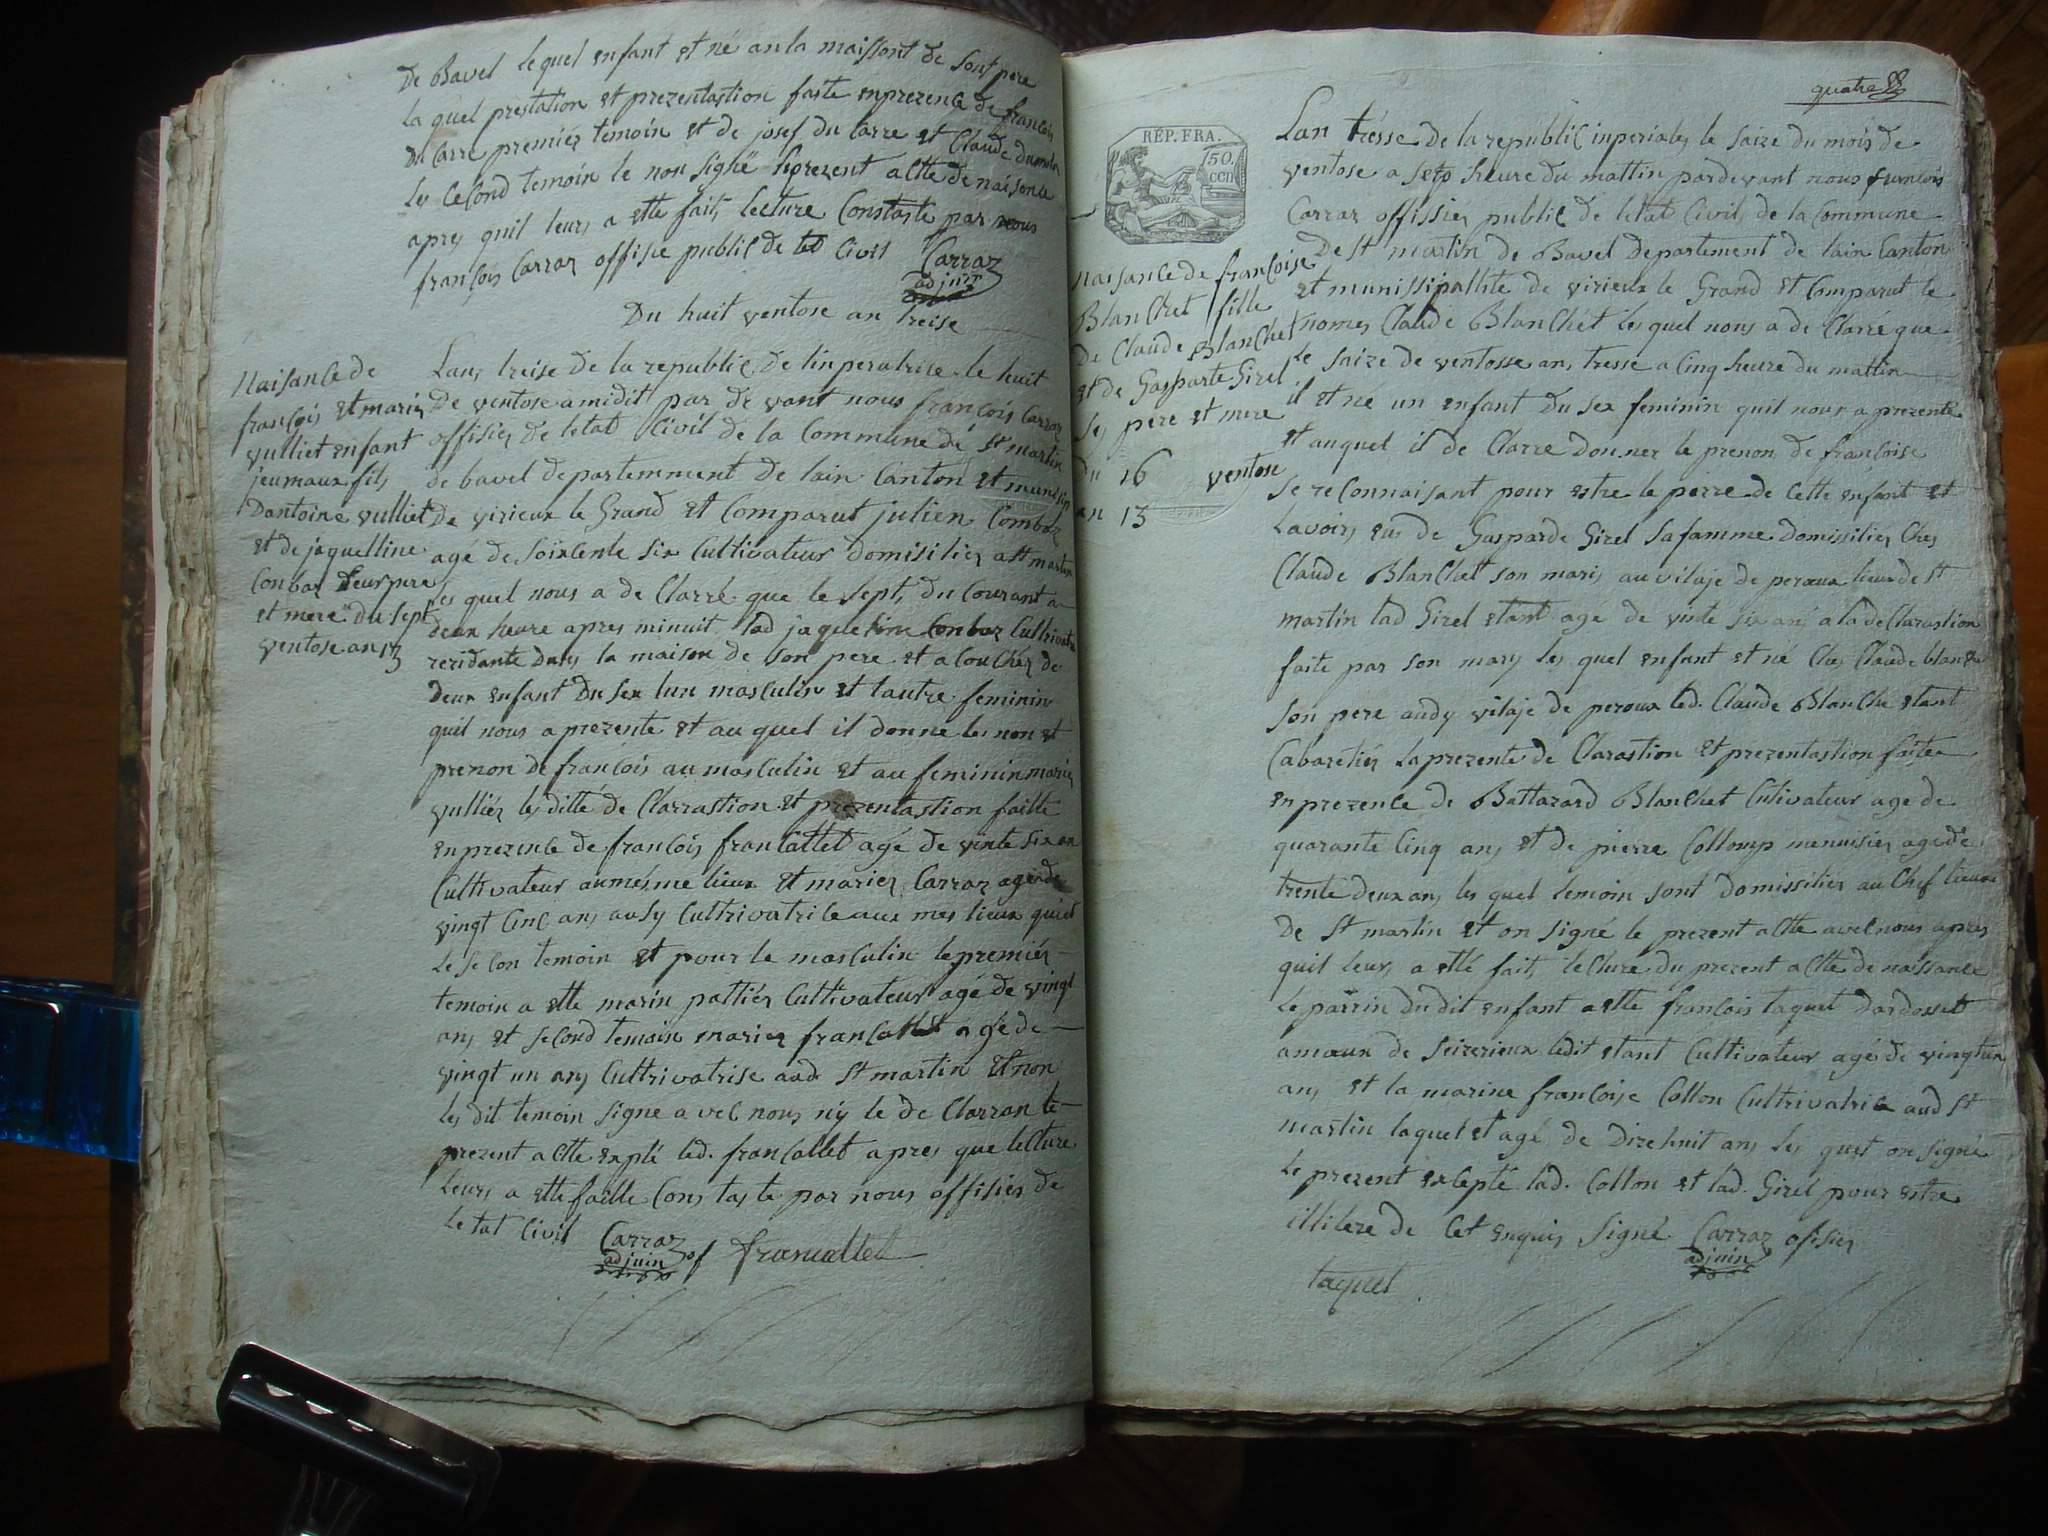 De Bavel lequel enfant et né an la maissont de sont pere
la quel prestation et prezentastion faite enprezence de francois
du Carre premier temoin et de josef du Carre et Claude
les Cecond temoin le non signé le prezent actte de naisence
apres quil leurs a ette fait lecture Constaste par nous
françois Carraz offisie public de let Civil Carraz
adjuin
Du huit ventose an treise
Naisance de
françois et maries
vulliet enfant
jeumaux fils
Dantoine vulliet
et de jaquelline
Conbaz leur pere
et mere du sept
ventose an 13
Lans treise de la republic de linperatrice le huit
De ventose a midit par de vant nous françois Carraz
offisies de letat Civil de la Commune de St martin
de bavel departemment de lain Canton et
De virieux le Grand et Comparut julien Combaz
agé de soixcente six Cultivateur domisilies a St martin
les quel nous a de Clarré que le sept du Courant a
deux heure apres minuit lad jaqueline Conbaz Cultrivatr
reridante dans la maison de son pere et a Couchér de
Deux enfant du sex lun masculin et lautre feminin
quil nous a prezente et au quel il donne les non et
prenon de françois au masculin et au feminin maries
vulliér les ditté de Clarrastion et prezentastion faitte
enprezence de françois francallet agé de vinte six an
Cultivateur aumésme lieux et maries Carraz agé de
vingt Cinc ans ausy Cultrivatrice aux mes lieux qui et
le se Con temoin et pour le masculin le premiér
temoin a ette marin pattiér Cultivateur agé de vingt
ans et second temoin maries francallet agé de
vingt un ans Cultrivatrise aud St martin et non
les dit temoin signe avec nous niy le de Clarran le
prezent actte explé led. francallet apres que lecture
leurs a ette faitte Constaste par nous offisies de
le tat Civil Carraz of francallet
adjuin
quatre
RÉP. FRA.
50. cen
Naisance de françoise
Blanchet fille
De Claude Blanchet
et de Gasparte Girel
ses pere et mere
du 16 ventose
an 13
Lan trésse de la republic inperiales le saize du mois de
ventose a sept heure du mattin pardevant nous francois
Carraz offissier public de letat Civil de la Commune
De st martin de Bavel departement de lain Canton
et munissipallite de virieux le Grand et Comparut le
nomes Claude Blanchét les quel nous a de Clarré que
le saize de ventosse an tresse a Cinq heure du mattin
il et né un enfant du sex feminin quil nous a prezente
et auquel il de Clarre donner le prenon de francoise
se reconnaisant pour estre le perre de Cette enfant et
lavoir eus de Gasparde Girel sa famme domissiliér Ches
Claude Blanchet son maris au vilaje de peroux lieux de st
martin lad Girel etant agé de vinte six ans a la de Clarastion
faite par son mary les quel enfant et né Ches Claude blanche
son pere audy vilaje de peroux led. Claude Blanche etant
Cabaretiér la prezente de Clarastion et prezentastion faite
en prezence de Battazard Blanchet Cultivateur age de
quarante Cinq ans et de pierre Collomp menuisier age de
trente deux ans les quel temoin sont domissiliés au Chef lieux
De st martin et on signé le prezent actte avec nous apres
quil leurs a etté fait lecture du prezent actte de naissance
le parrin du dit enfant a ette francois taquet dardosset
amoeux de seizerieux ledit etant Cultivateur agé de vingt un
ans et la marine françoise Collon Cultrivatrice aud st
martin laquel et agé de dizehuit ans les quel on signé
le prezent exlepté lad. Collon et lad. Girel pour estre
illitere de Cet enquis signé Carraz ofisies
adjuin
taquet